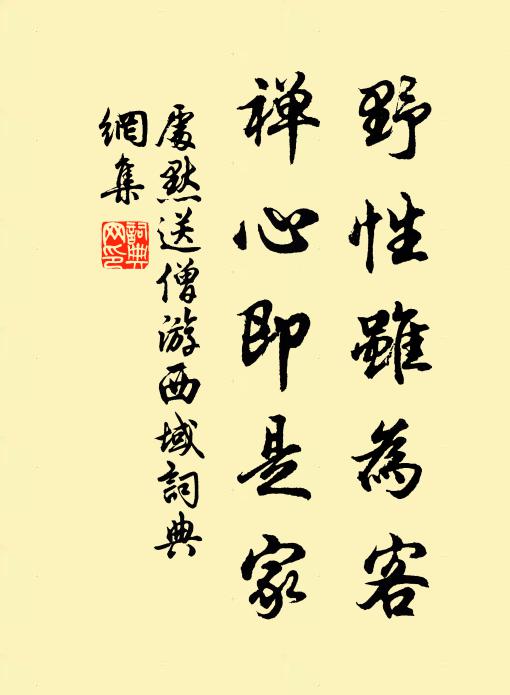 野性雖為客
禅心即是家
處默送僧游西域詞典
網集
詞典
网印